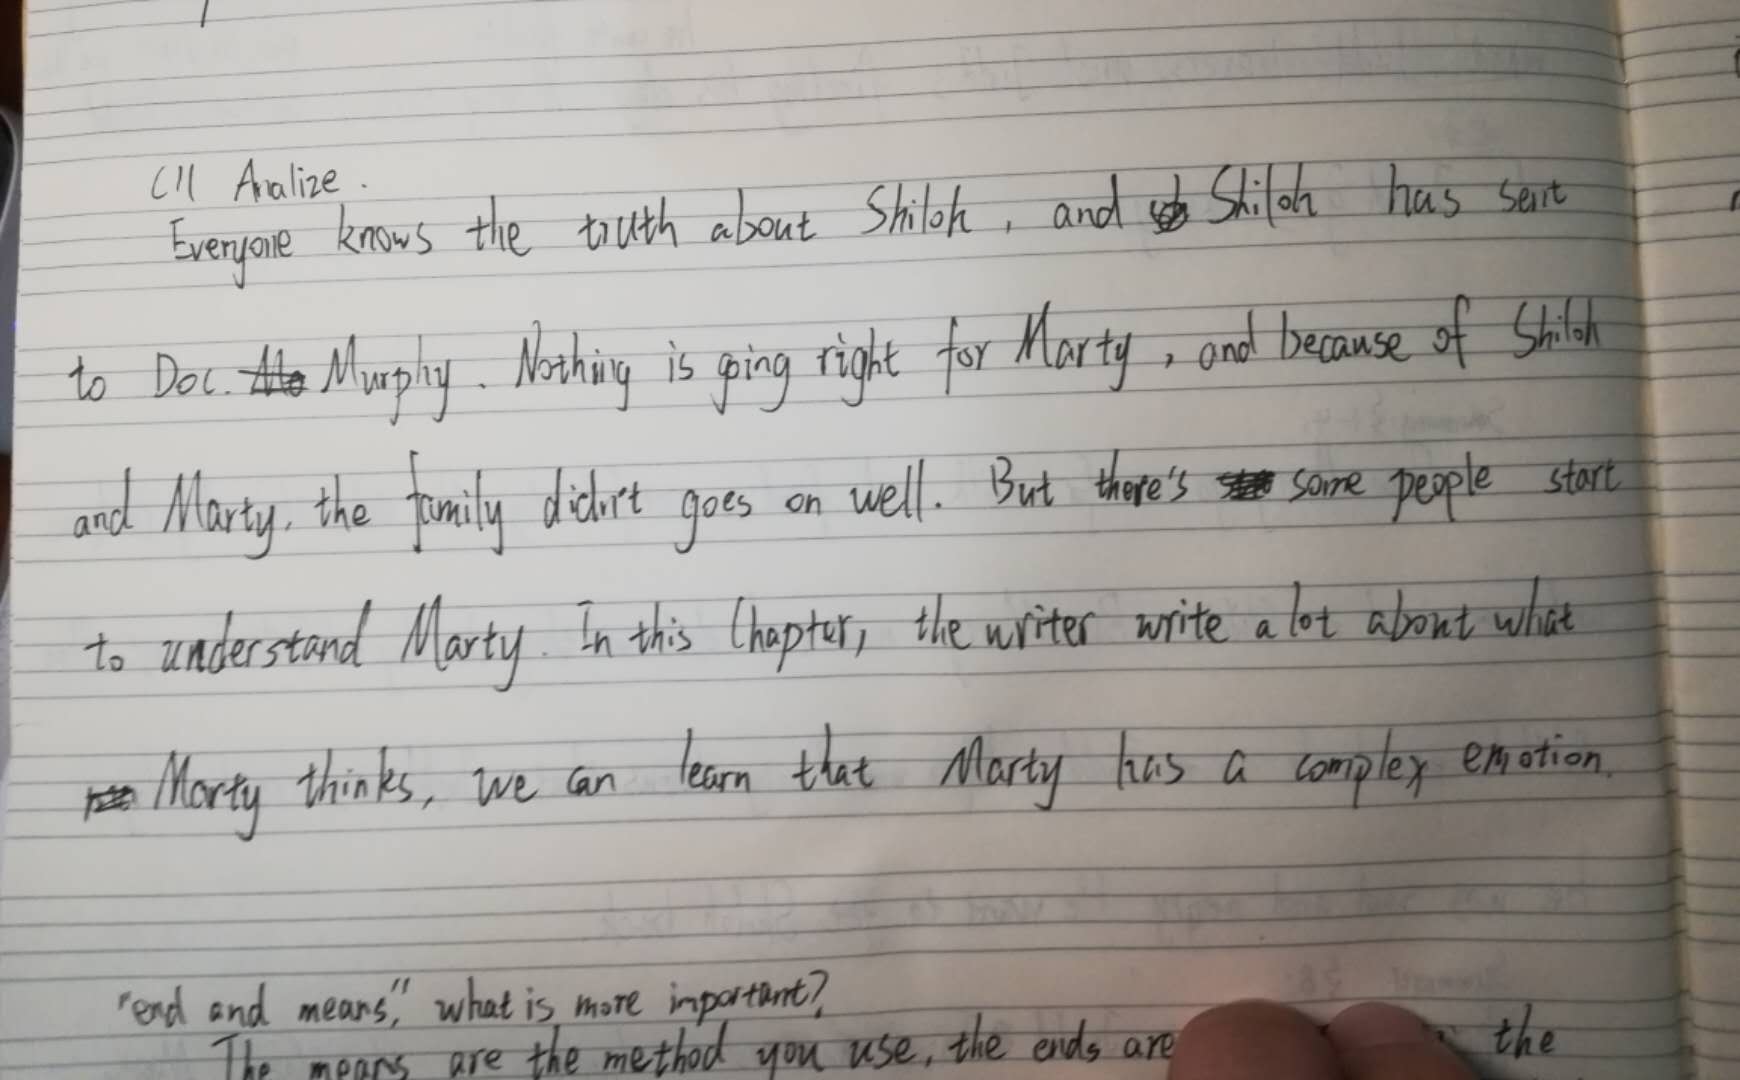 C11 Analize.
Everyone knows the truth about Shiloh, and Shiloh has sent
to Doc. Murphy. Nothing is going right for Marty, and because of Shiloh
and Marty, the family didn't goes on well. But there's some people start
to understand Marty. In this Chapter, the writer write a lot about what
Marty thinks, we can learn that Marty has a complex emotion.
"end and means," what is more important?
The means are the method you use, the ends are the